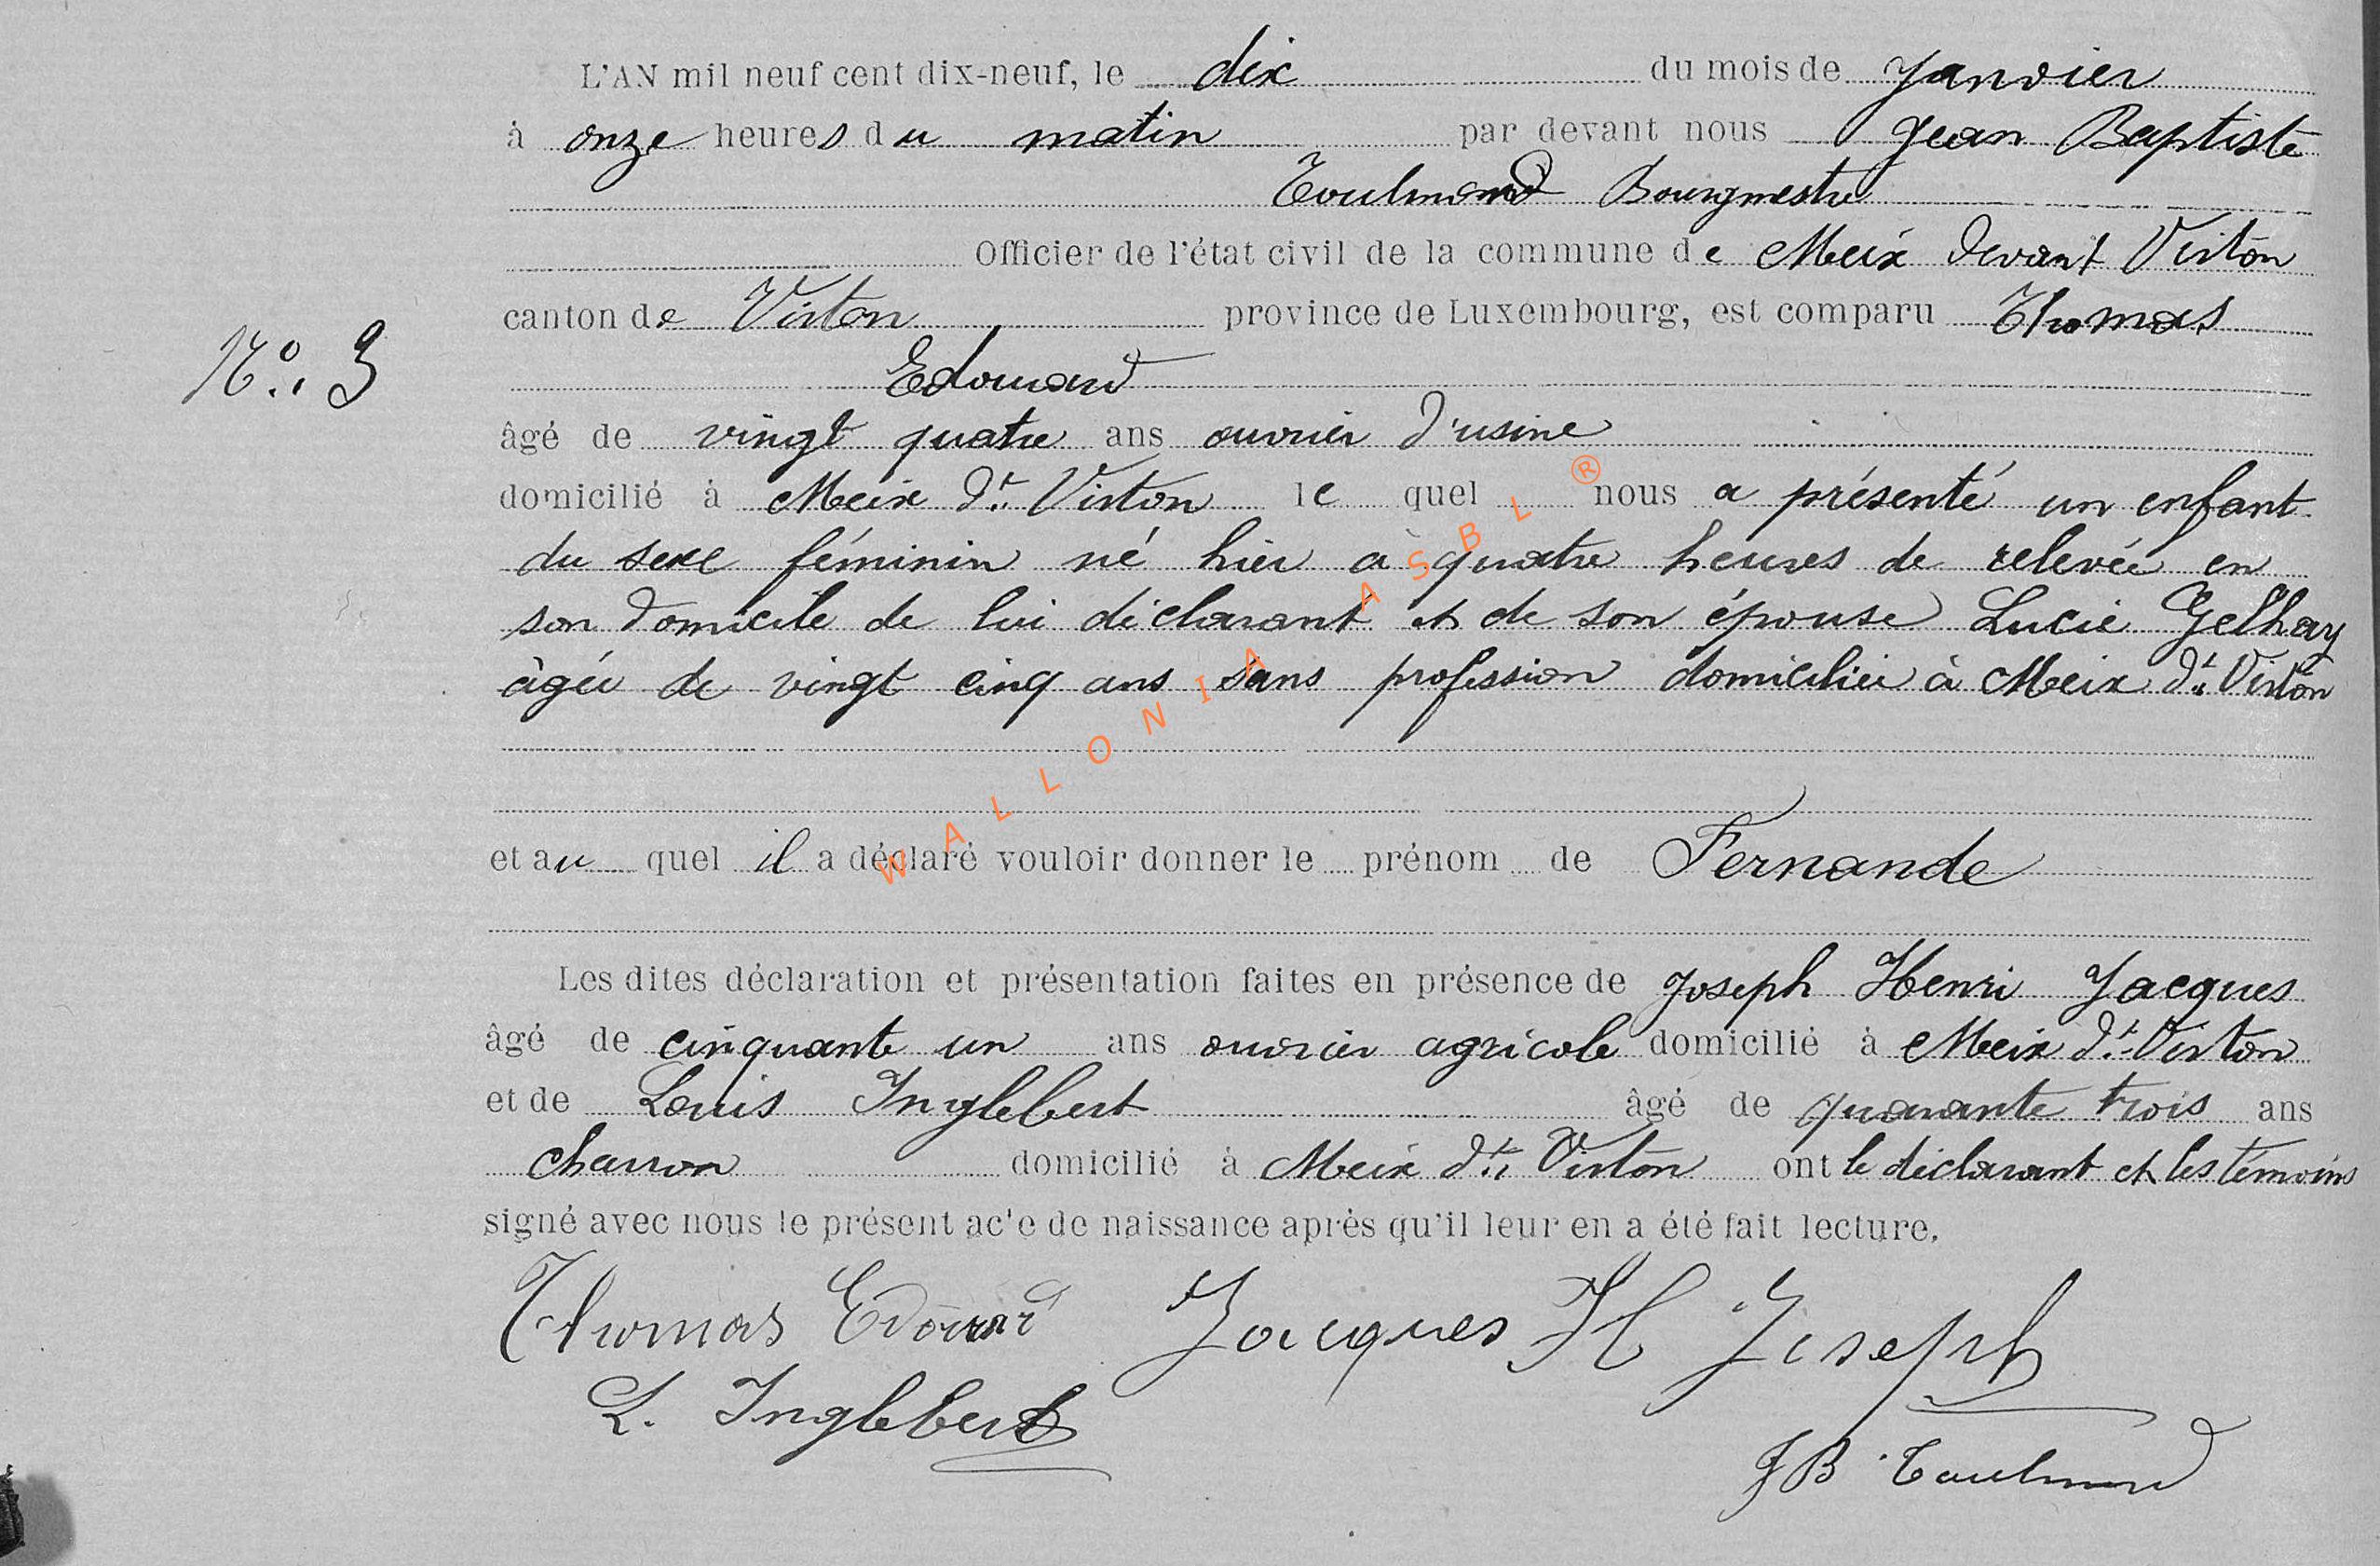 L'AN mil neuf cent dix-neuf, le dix du mois de Janvier
à onze heures du matin par devant nous Jean Baptiste
Toulmond Bourgmestre
Officier de l'état civil de la commune de Meix devant Virton
canton de Virton province de Luxembourg, est comparu Thomas
N° 3
Edouard
âgé de vingt quatre ans ouvrier d'usine
domicilié à Meix dt Virton le quel nous a présenté un enfant
du sexe féminin né hier à quatre heures de relevée en
son domicile de lui déclarant et de son épouse Lucie Gelhay
âgée de vingt cinq ans sans profession domiciliée à Meix dt Virton
et au quel il a déclaré vouloir donner le prénom de Fernande
Les dites déclaration et présentation faites en présence de Joseph Henri Jacques
âgé de cinquante un ans ouvrier agricole domicilié à Meix dt Virton
et de Louis Inglebert âgé de quarante trois ans
charron domicilié à Meix dt Virton ont le déclarant et les témoins
signé avec nous le présent acte de naissance après qu'il leur en a été fait lecture.
Thomas Edouard Jacques H Joseph
L. Inglebert
JB Toulmond
WALLONIA ASBL ®